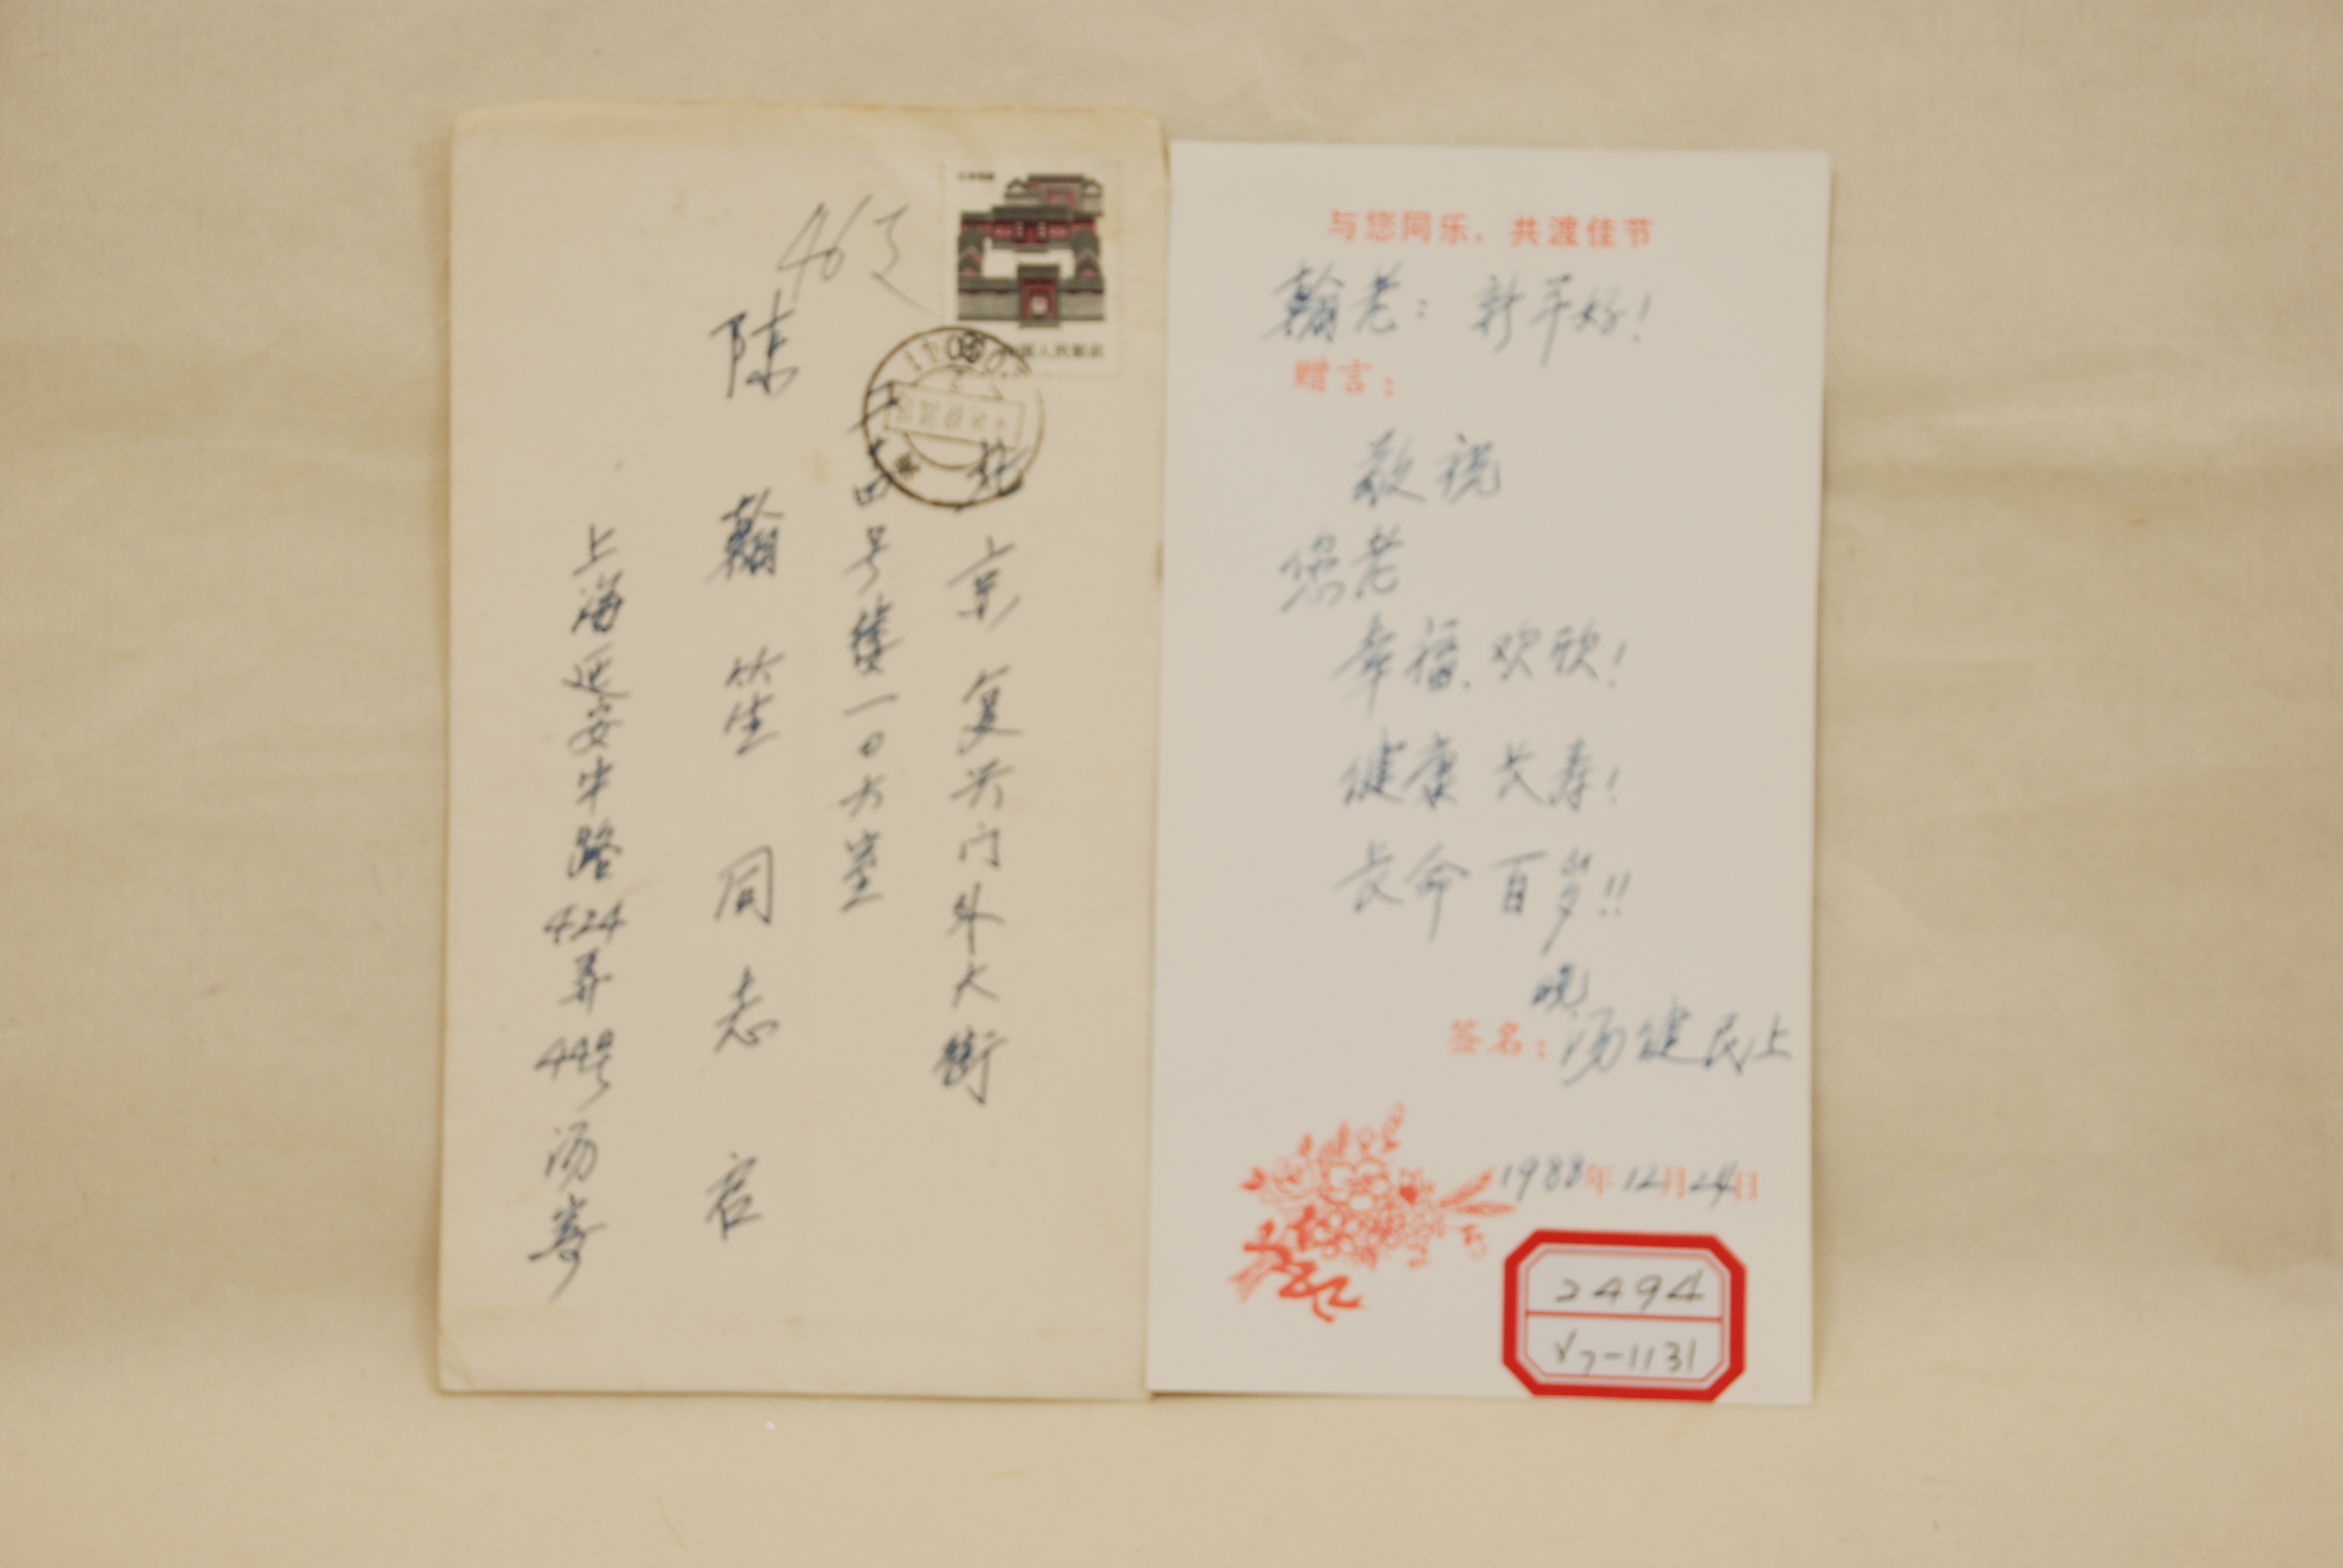 北京复兴门外大街
廿四号楼一0六室
陈翰笙同志启
上海延安中路424弄44号汤寄
中国人民邮政
与您同乐，共渡佳节
翰老：新年好！
赠言：
敬祝
您老
幸福、欢欣！
健康长寿！
长命百岁！！
晚
签名：汤健民上
1988年12月24日
2494
V7-1131